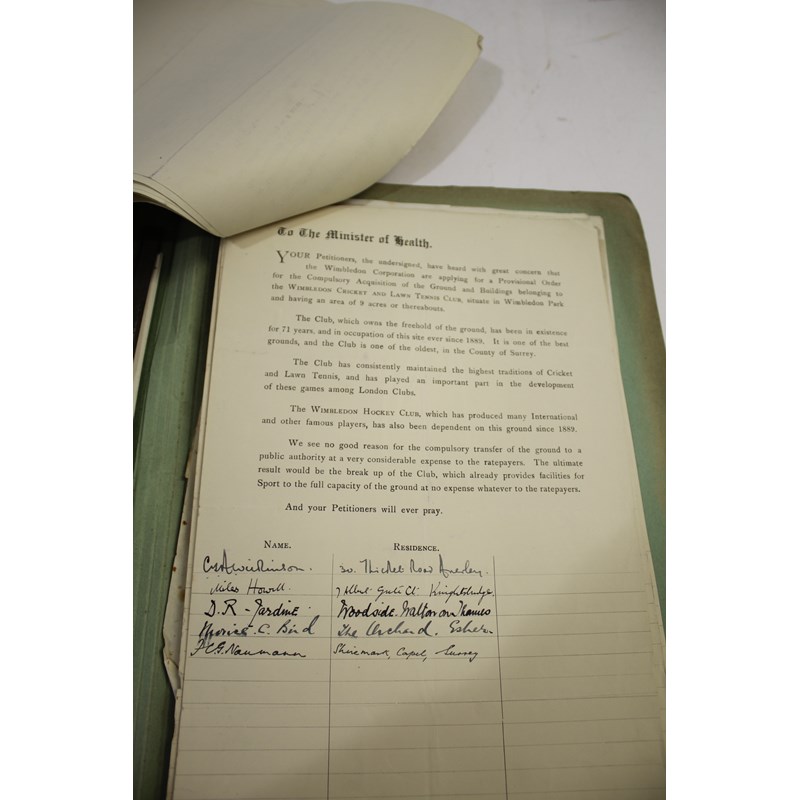 To The Minister of Health.
YOUR Petitioners, the undersigned, have heard with great concern that
the Wimbledon Corporation are applying for a Provisional Order
for the Compulsory Acquisition of the Ground and Buildings belonging to
the WIMBLEDON CRICKET AND LAWN TENNIS CLUB, situate in Wimbledon Park
and having an area of 9 acres or thereabouts.
The Club, which owns the freehold of the ground, has been in existence
for 71 years, and in occupation of this site ever since 1889. It is one of the best
grounds, and the Club is one of the oldest, in the County of Surrey.
The Club has consistently maintained the highest traditions of Cricket
and Lawn Tennis, and has played an important part in the development
of these games among London Clubs.
The WIMBLEDON HOCKEY CLUB, which has produced many International
and other famous players, has also been dependent on this ground since 1889.
We see no good reason for the compulsory transfer of the ground to a
public authority at a very considerable expense to the ratepayers. The ultimate
result would be the break up of the Club, which already provides facilities for
Sport to the full capacity of the ground at no expense whatever to the ratepayers.
And your Petitioners will ever pray.
NAME. RESIDENCE.
Wilkinson. 30. Thicket Road Anerley.
Miles Howell. 7 Albert Gate Ct. Knightsbridge.
D. R. Jardine. Woodside. Walton on Thames
C. Bird The Orchard. Esher.
Naumann Shiremark, Capel, Surrey